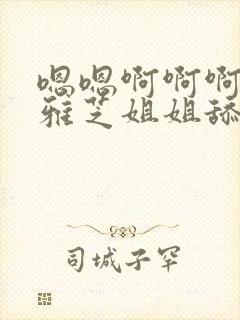 嗯嗯啊啊啊
雅芝姐姐舔
司城子罕